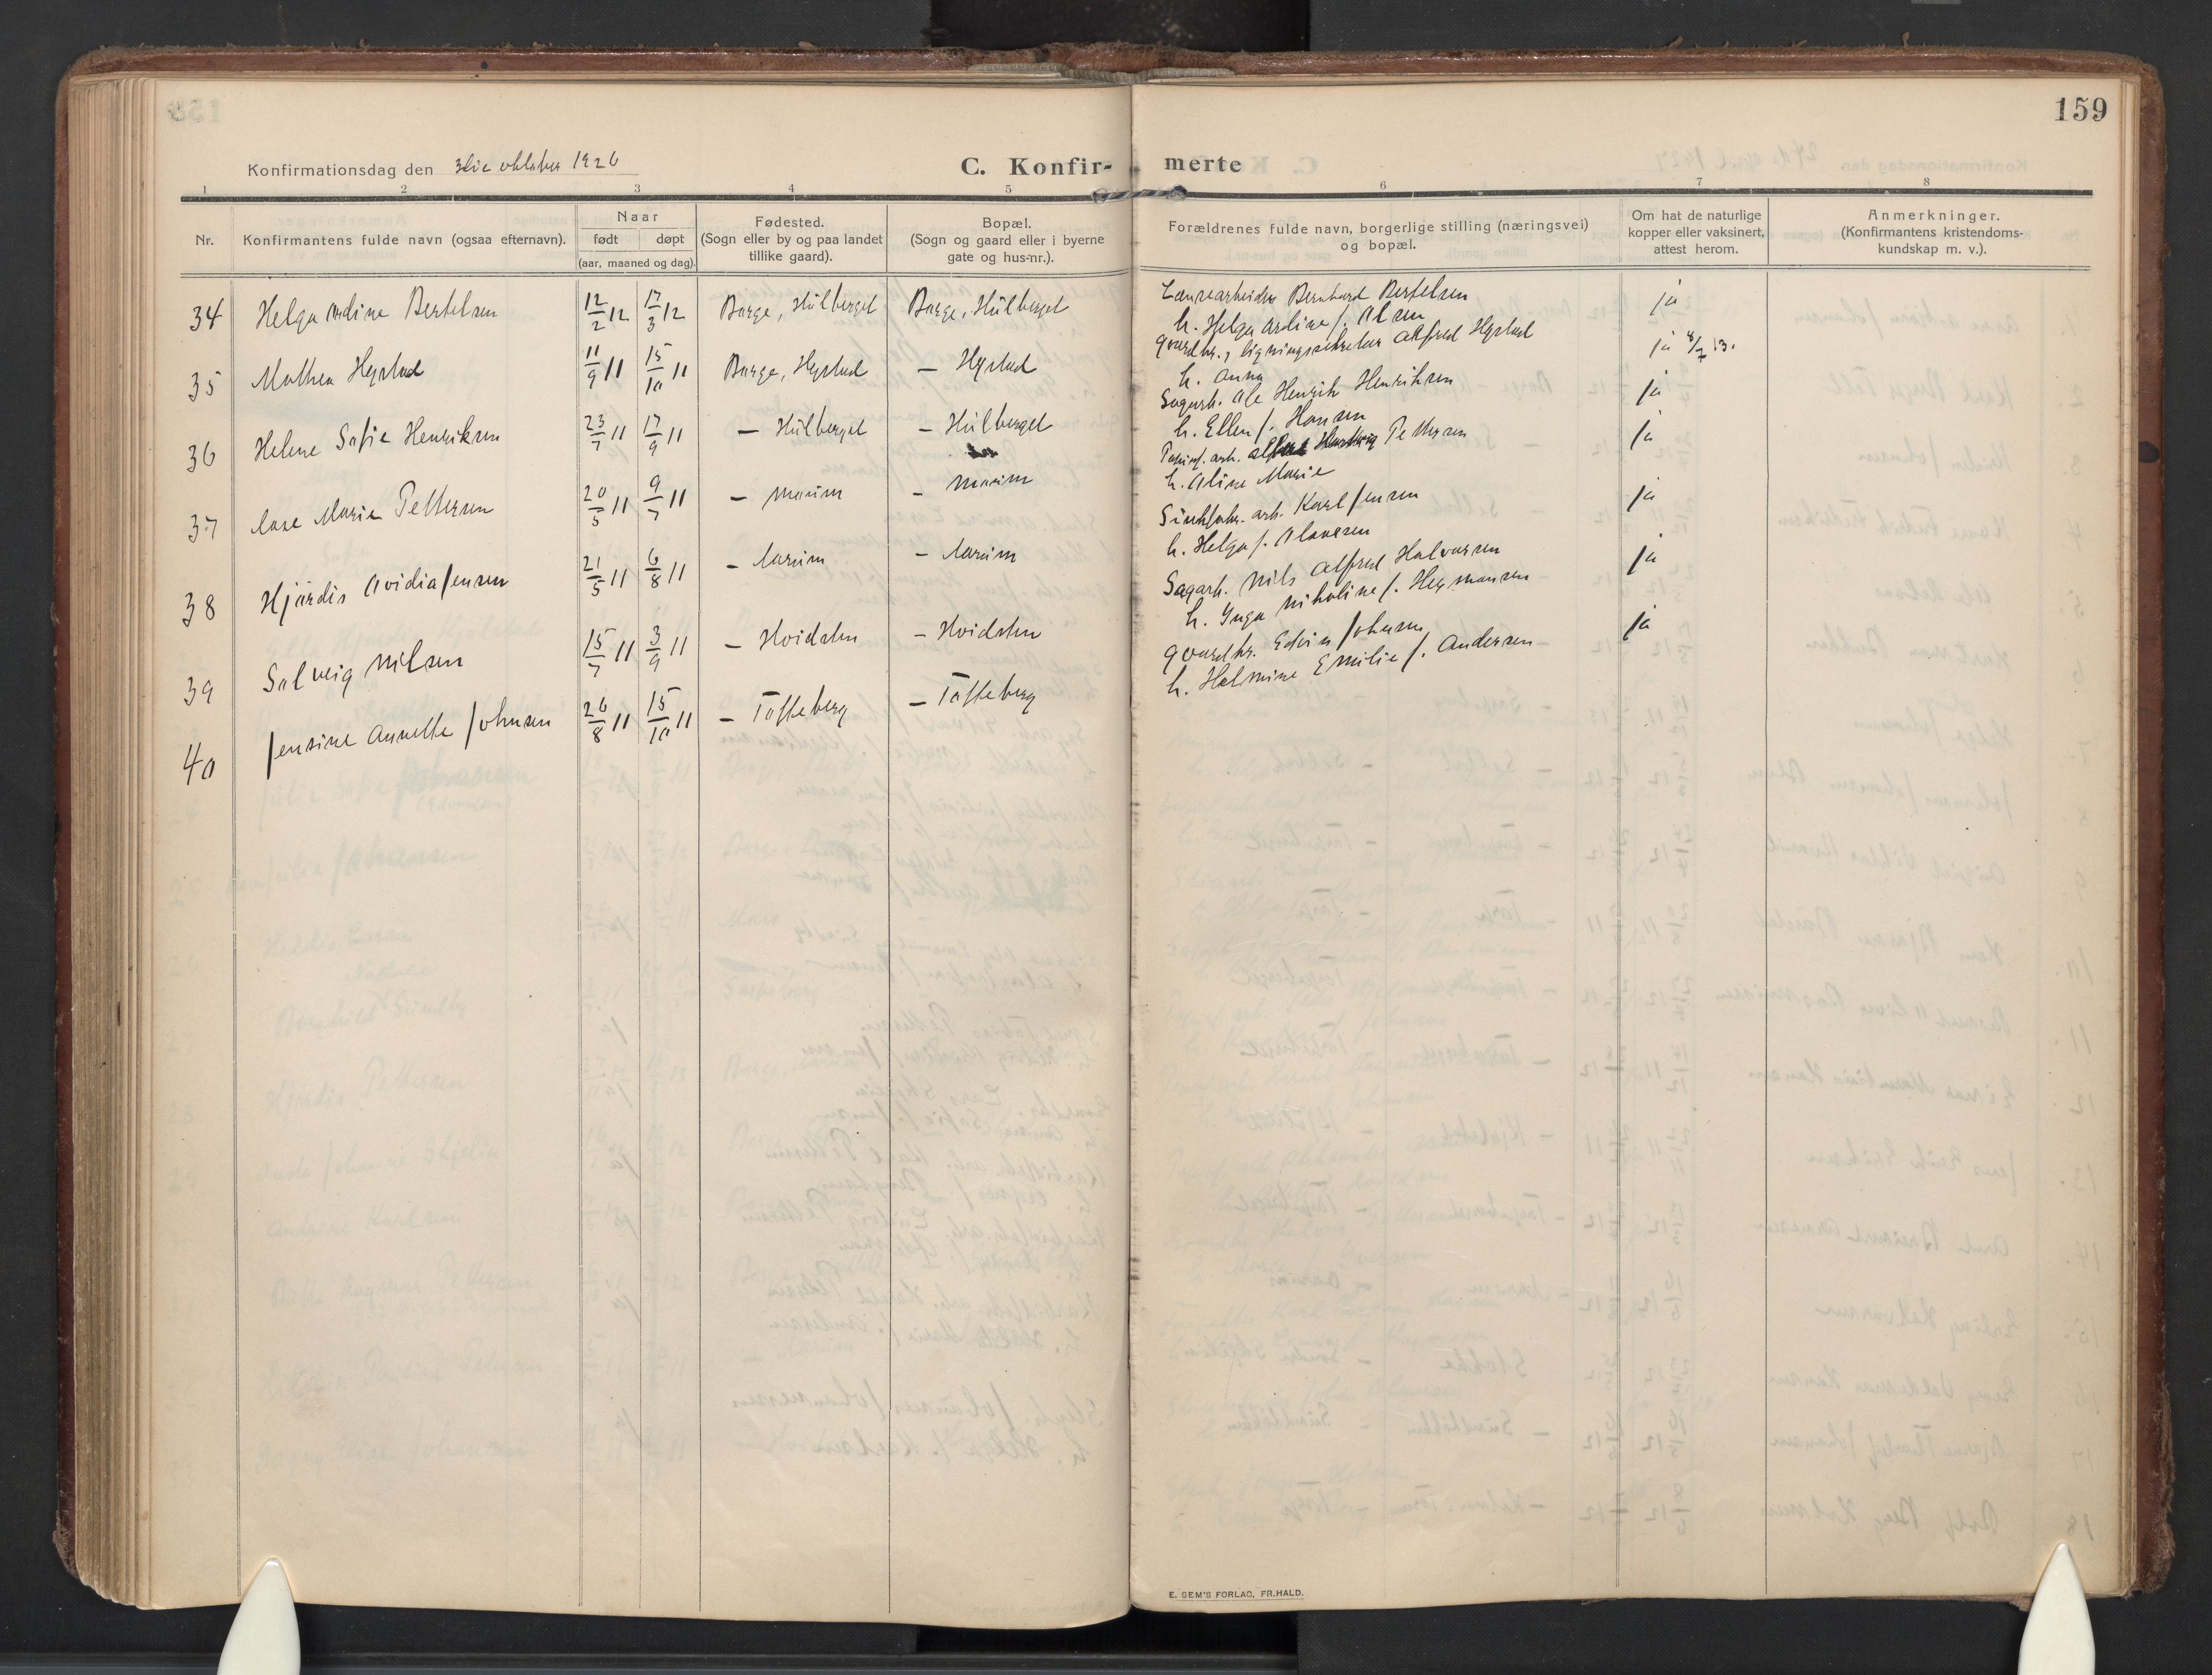 159
Konfirmationsdag den 3die oktober 1926
C. Konfir- merte
1 2 3 4 5 6 7 8
Nr.
Konfirmantens fulde navn (ogsaa efternavn).
Naar
født døpt
(aar, maaned og dag).
Fødested.
(Sogn eller by og paa landet
tillike gaard).
Bopæl.
(Sogn og gaard eller i byerne
gate og hus-nr.).
Forældrenes fulde navn, borgerlige stilling (næringsvei)
og bopæl.
Om hat de naturlige
kopper eller vaksinert,
attest herom.
Anmerkninger.
(Konfirmantens kristendoms-
kundskap m. v.).
34 Helga Ardine Bertelsen 12/2 12 17/3 12 Borge, Hulberget Borge, Hulberget
Lensearbeider Bernhard Bertelsen ja
h. Helga Ardine f. Olsen
35 Mathea Hystad 11/9 11 15/10 11 Borge, Hystad – Hystad
Gaardbr., ligningssekretær Alfred Hystad ja 8/7 13.
h. Anna
36 Helene Sofie Henriksen 23/7 11 17/9 11 – Hulberget – Hulberget
Sagarb. Ole Henrik Henriksen ja
h. Ellen f. Hansen
37 Aase Marie Pettersen 20/5 11 9/7 11 – Moum – Moum
Papirf. arb. Pettersen ja
h. Aline Marie
38 Hjördis Ovidia Jensen 21/5 11 6/8 11 – Aarum – Aarum
Sinkfabr. arb. Karl Jensen ja
h. Helga f. Olavesen
39 Solveig Nilsen 15/7 11 3/9 11 – Hvidsten – Hvidsten
Sagarb. Nils Alfred Halvorsen ja
h. Inga Nikoline f. Hermansen
40 Jensine Annette Johnsen 26/8 11 15/10 11 – Tofteberg – Tofteberg
Gaardbr. Edvin Johnsen ja
h. Halmine Emilie f. Andersen
E. SEM'S FORLAG, FR.HALD.